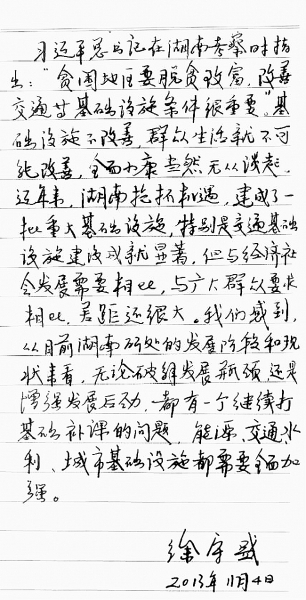 习近平总书记在湖南考察时指
出："贫困地区要脱贫致富，改善
交通等基础设施条件很重要"。基
础设施不改善，群众生活就不可
能改善，全面小康当然无从谈起。
近年来，湖南抢抓机遇，建成了一
批重大基础设施，特别是交通基础
设施建设成就显著，但与经济社
会发展需要相比，与广大群众要求
相比，差距还很大。我们感到，
从目前湖南所处的发展阶段和现
状来看，无论破解发展瓶颈还是
增强发展后劲，都有一个继续打
基础补课的问题，能源、交通、水
利、城市基础设施都需要全面加
强。
徐守盛
2013年11月4日